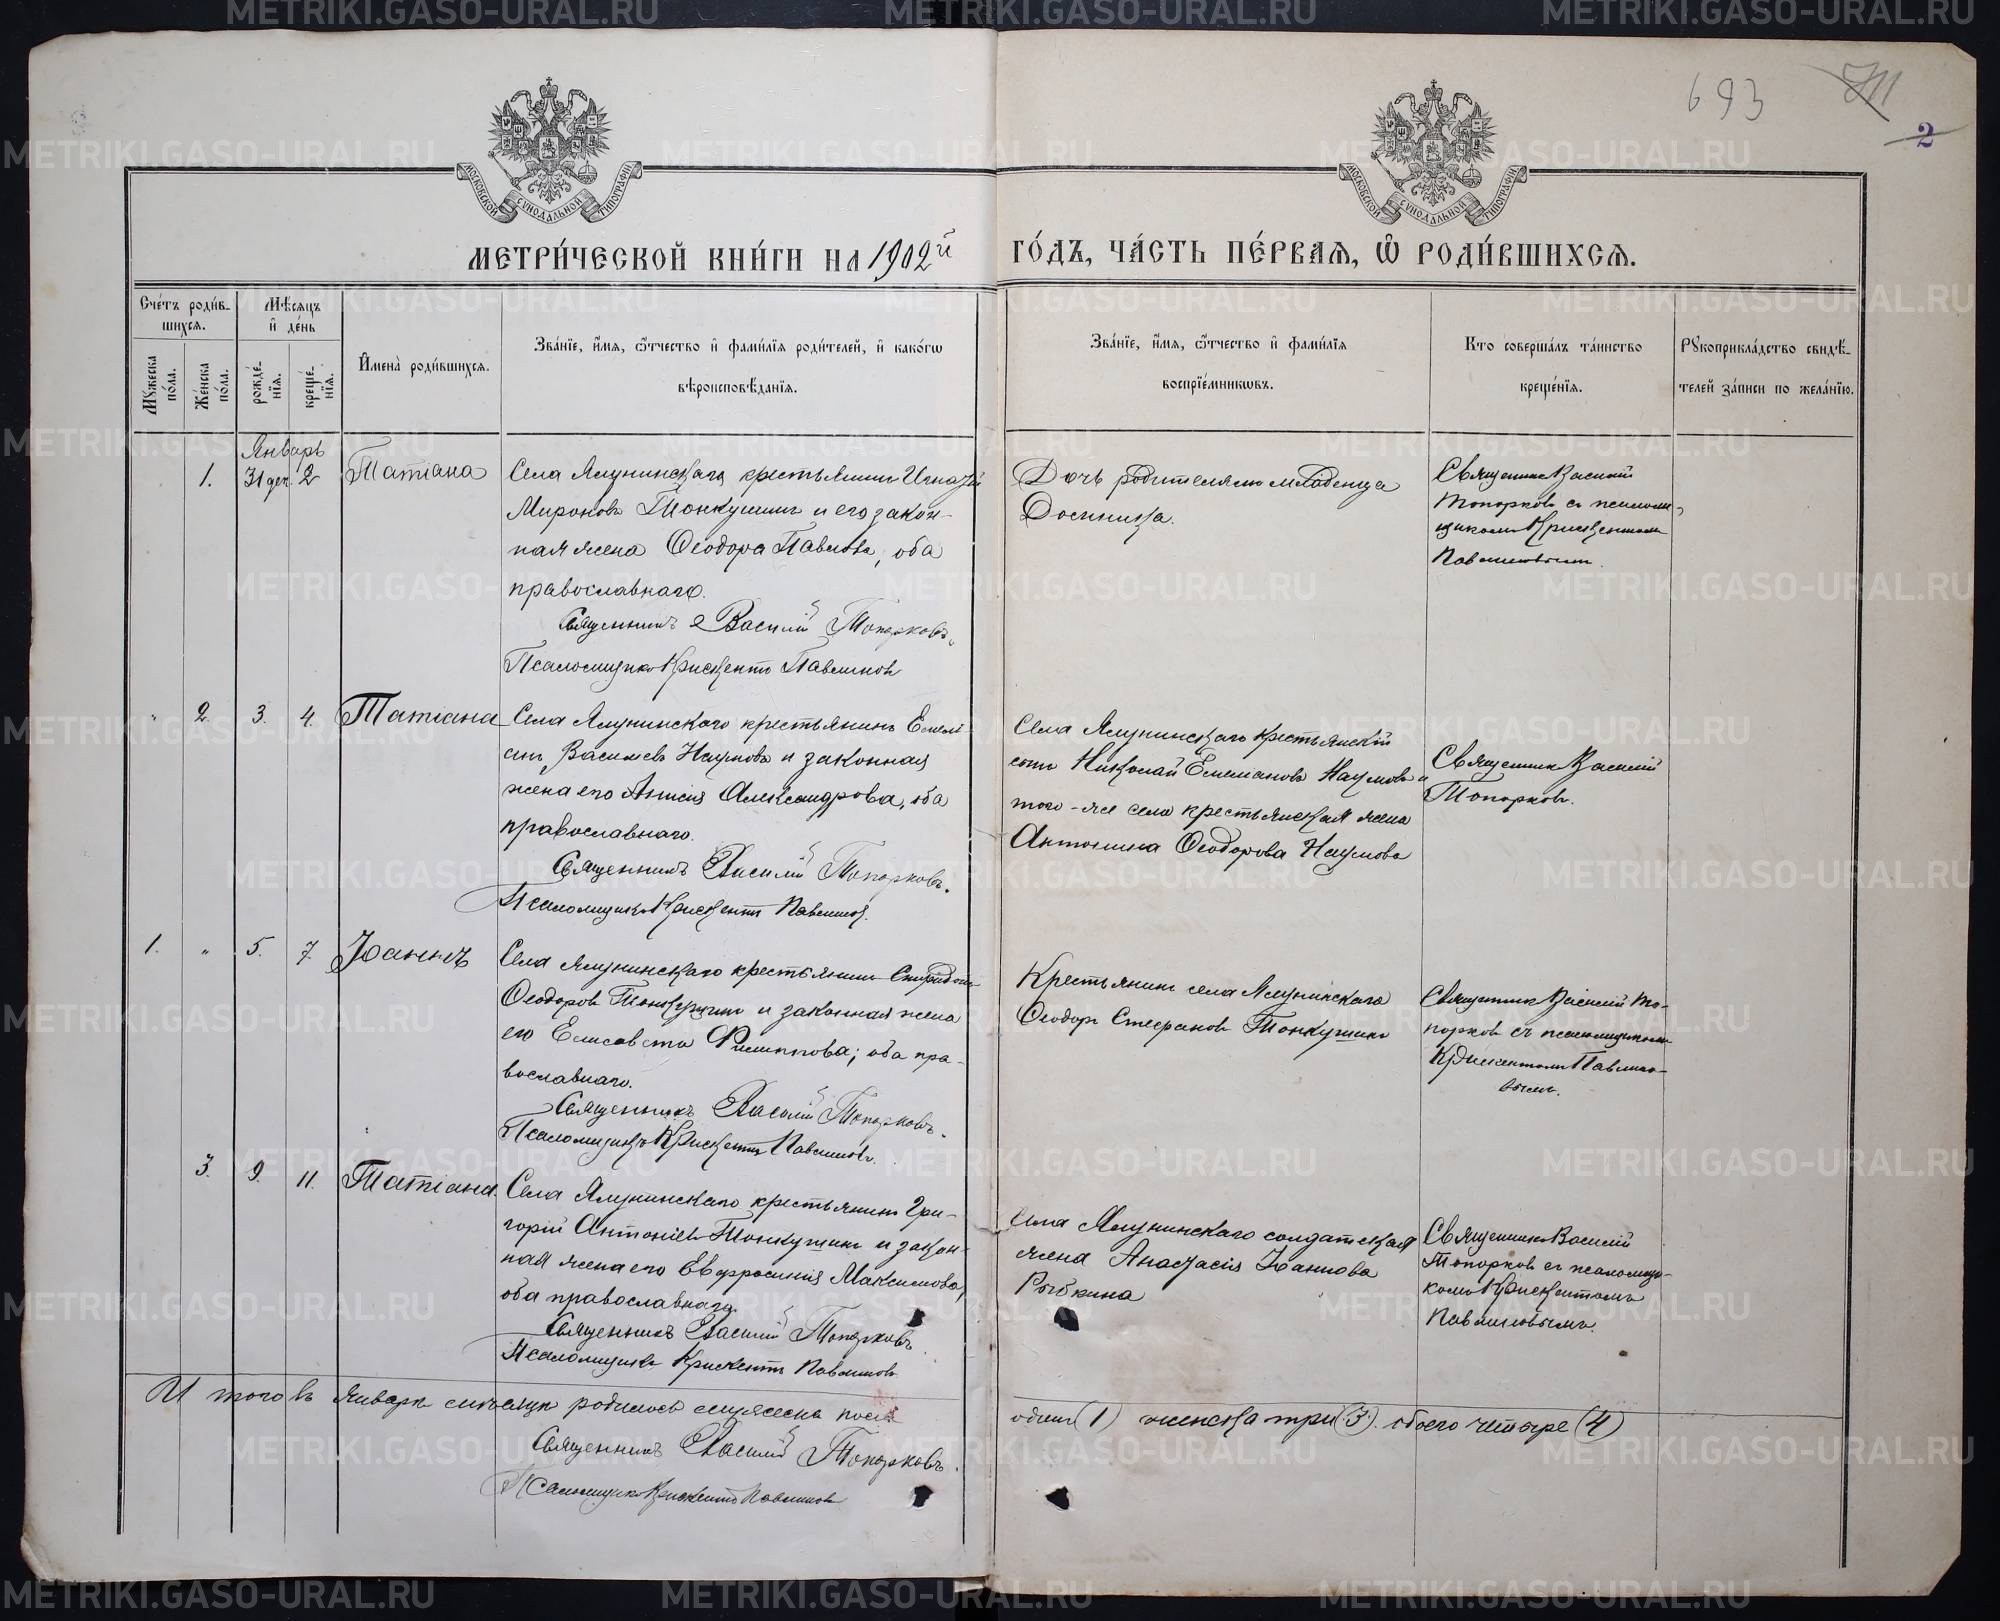 693
711
2
МОСКОВСКОЙ СѴНОДАЛЬНОЙ ТИПОГРАФІИ
МОСКОВСКОЙ СѴНОДАЛЬНОЙ ТИПОГРАФІИ
МЕТРИ́ЧЕСКОЙ КНИ́ГИ НА 1902й ГО́ДЪ, ЧА́СТЬ ПЕ́РВАѦ, Ѡ҆ РОДИ́ВШИХСѦ.
Сче́тъ роди́в-
шихсѧ.
Мѣ́сѧцъ
и҆ де́нь
Мꙋ́жеска
по́ла.
Же́нска
по́ла.
рожде́-
нїѧ.
креще́-
нїѧ.
И҆мена̀ роди́вшихсѧ.
Зва́нїе, и҆́мѧ, ѻ҆́тчество и҆ фами́лїѧ роди́телей, и҆ како́гѡ
вѣроисповѣ́данїѧ.
Зва́нїе, и҆́мѧ, ѻ҆́тчество и҆ фами́лїѧ
воспрїе́мникѡвъ.
Кто̀ соверша́лъ та́инство
креще́нїѧ.
Рꙋкоприкла́дство свидѣ́-
телей за́писи по жела́нїю.
Январь
1. 31 дек. 2 Татіана
Села Ялунинскаго крестьянинъ Игнатій
Мироновъ Тонкушинъ и его закон-
ная жена Ѳеодора Павлова, оба
православнаго.
Священникъ Василій Топорковъ.
Псаломщикъ Крискентъ Павлиновъ
Дочь родителями младенца
Священникъ Василій
Топорковъ съ псаломщ-
икомъ Крискентомъ
Павлиновымъ.
" 2. 3. 4. Татіана
Села Ялунинскаго крестьянинъ Емелі-
анъ Васильевъ Наумовъ и законная
жена его Анисія Александрова, оба
православнаго.
Священникъ Василій Топорковъ.
Псаломщикъ Крискентъ Павлиновъ.
Села Ялунинскаго крестьянскій
сынъ Николай Емельяновъ Наумовъ и
того-же села крестьянская жена
Антонина Ѳеодорова Наумова
Священникъ Василій
Топорковъ.
1. " 5. 7. Іоаннъ
Села Ялунинскаго крестьянинъ Спиридонъ
Ѳеодоровъ Тонкушинъ и законная жена
его Елисавета Филиппова; оба пра-
вославнаго.
Священникъ Василій Топорковъ.
Псаломщикъ Крискентъ Павлиновъ.
Крестьянинъ села Ялунинскаго
Ѳеодоръ Стефановъ Тонкушинъ
Священникъ Василій То-
порковъ съ псаломщикомъ
Крискентомъ Павлино-
вымъ.
3. 9. 11. Татіана.
Села Ялунинскаго крестьянинъ Гри-
горій Антоніевъ Тонкушинъ и закон-
ная жена его Евфросинія Максимова,
оба православнаго.
Священникъ Василій Топорковъ.
Псаломщикъ Крискентъ Павлиновъ
Села Ялунинскаго солдатская
жена Анастасія Іоаннова
Рыбкина
Священникъ Василій
Топорковъ съ псаломщи-
комъ Крискентомъ
Павлиновымъ.
Итого въ Январѣ мѣсяцѣ родилось мужеска пола одинъ (1) женска три (3). обоего четыре (4)
Священникъ Василій Топорковъ.
Псаломщикъ Крискентъ Павлиновъ
METRIKI.GASO-URAL.RU